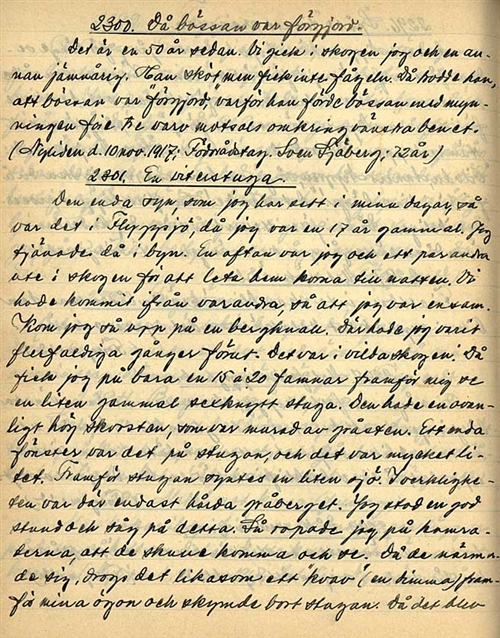 2300. Då bössan var förgjord.
Det är en 50 år sedan. Vi gick i skogen jog och en an-
nan jämnårig. Han sköt men fick inte fågeln. Då trodde han,
att bössan var "förgjord", varför han förde bössan med myn-
ningen före tre varv motsols omkring vänstra benet.
(Nyliden d. 10 nov. 1917; Födorådstag. Sven Sjöberg; 72 år)
2301. En vitterstuga
Den enda syn, som jag har sett i mina dagar, så
var det i Flyppsjö, då jag var en 17 år gammal. Jag
tjänade då i byn. En afton var jog och ett par andra
ute i skogen för att leta hem korna till natten. Vi
hade kommit ifrån varandra, så att jag var ensam.
Kom jog så upp på en bergknall. Där hade jog varit
flerfaldiga gånger förut. Det var i vilda skogen. Då
fick jog på bara en 15 à 20 famnar framför mig se
en liten gammal sexknytt stuga. Den hade en ovan-
ligt hög skorsten, som var murad av gråsten. Ett enda
fönster var det på stugan, och det var mycket li-
tet. Framför stugan syntes en liten sjö. I verklighe-
ten var där endast hårda gråberget. Jog stod en god
stund och såg på detta. Så ropade jog på kamra-
terna, att de skulle komma och se. Då de närma-
de sig, drogs det likasom ett "kvav" (en hinna) fram-
för mina ögon och skymde bort stugan. Då det blev